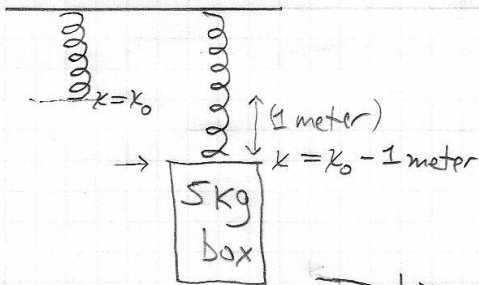 x=x₀
(1 meter)
x = x₀ - 1 meter
5kg
box